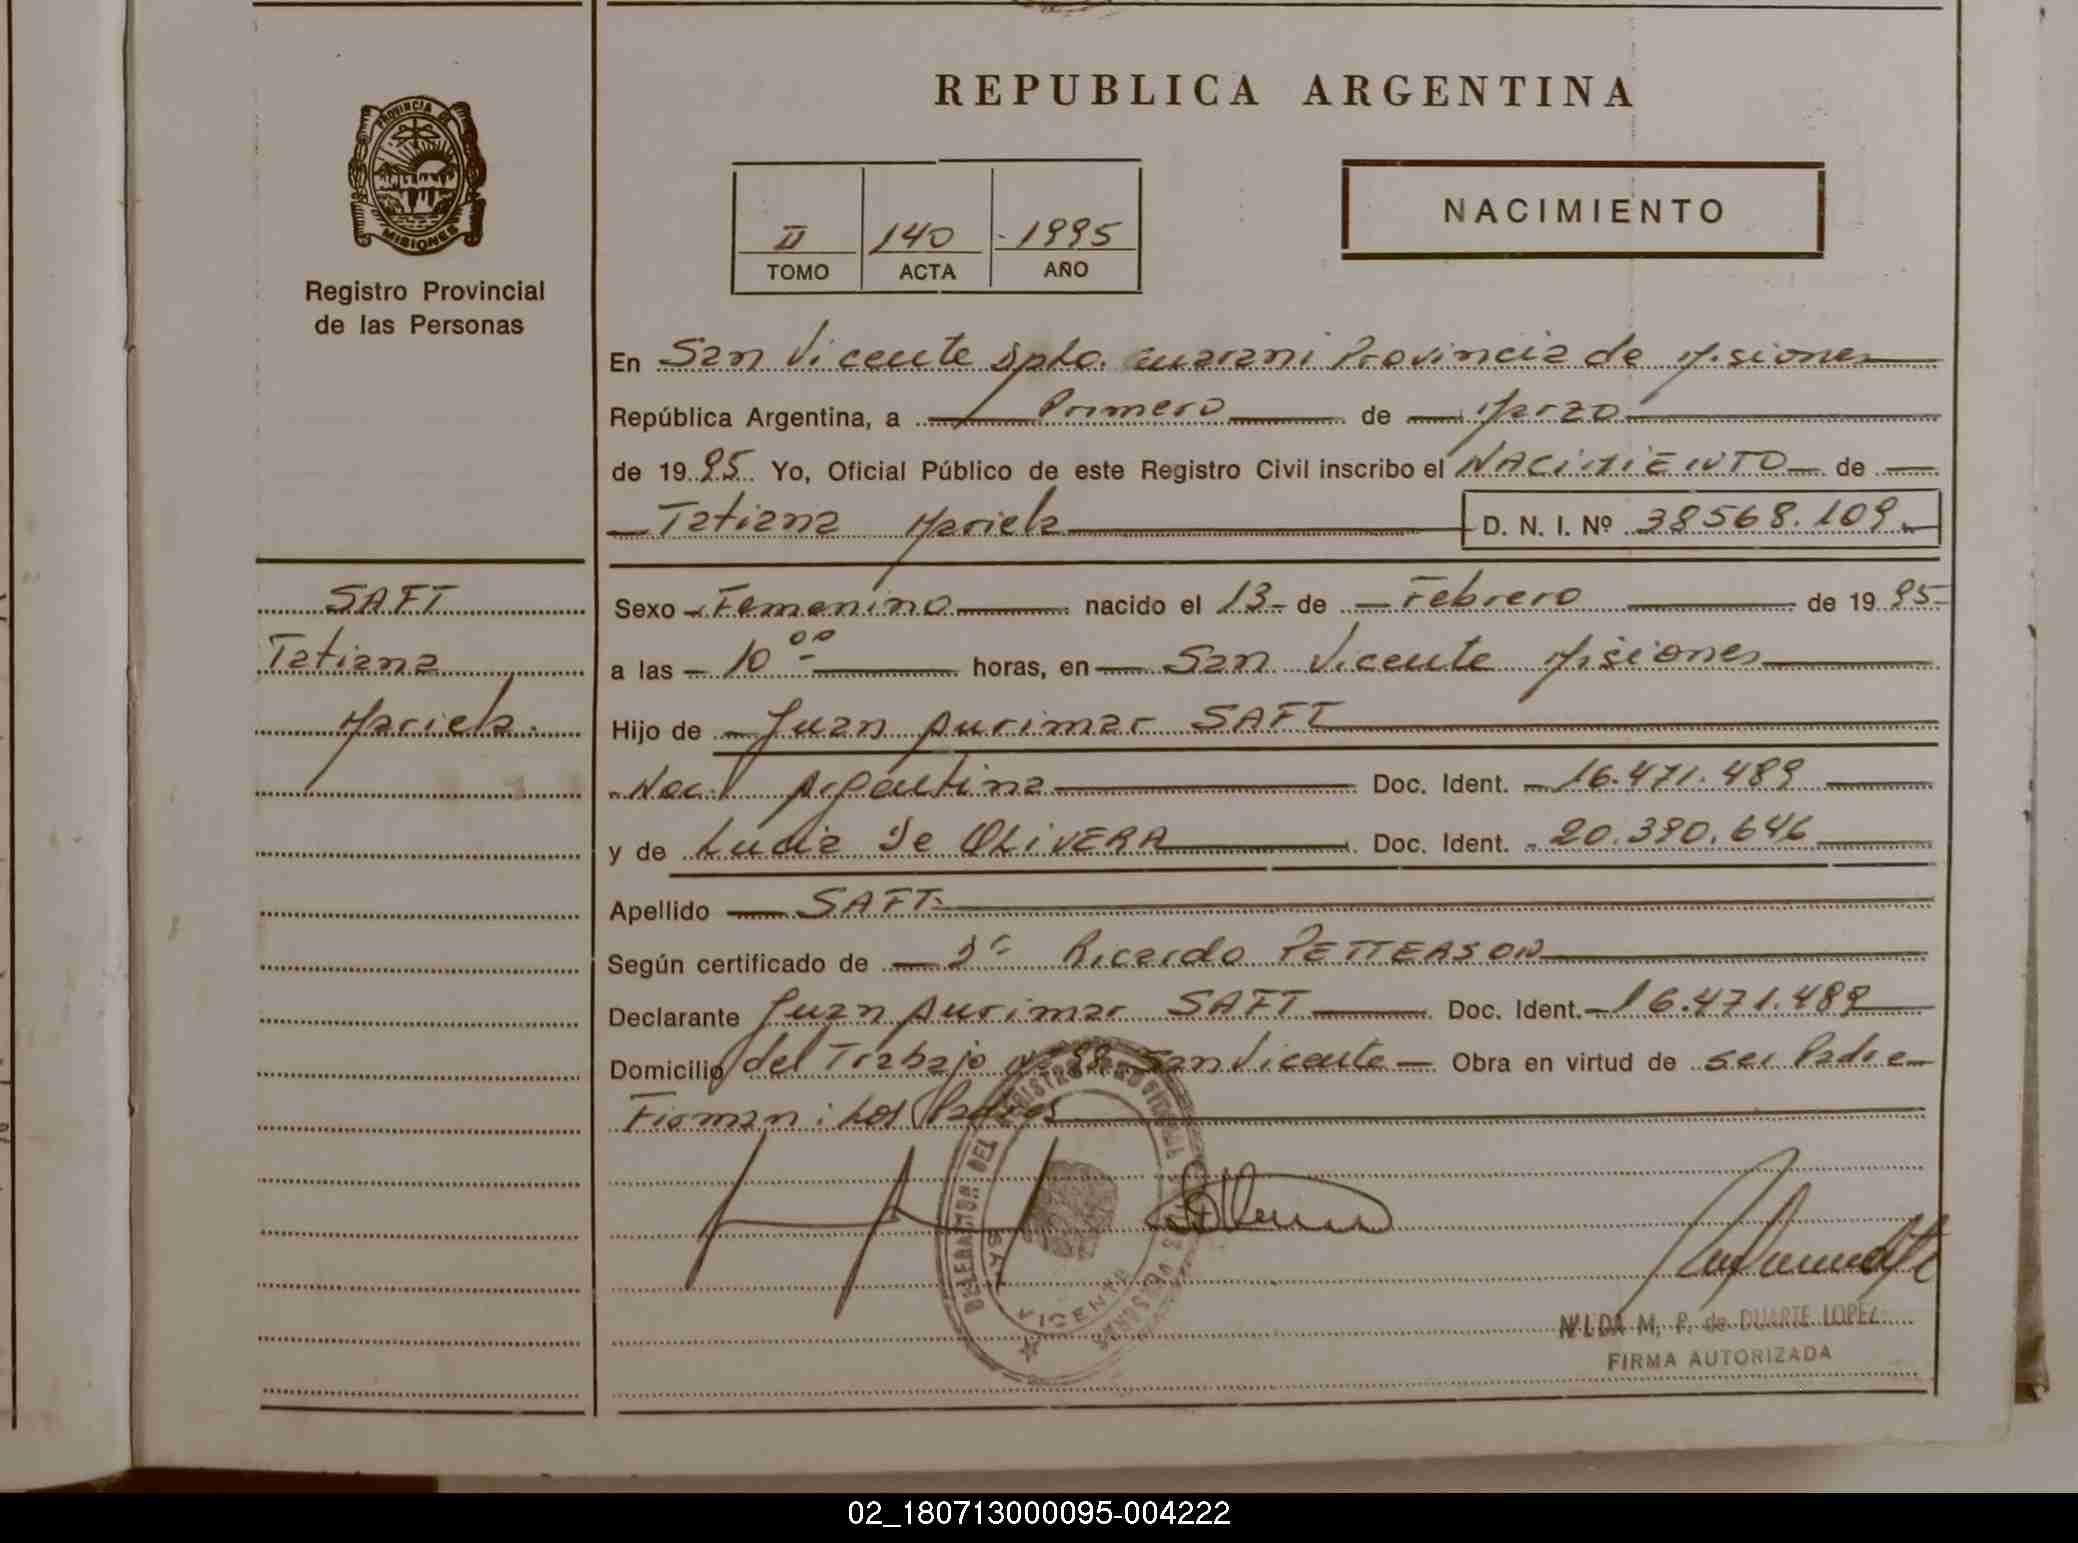 PROVINCIA DE
MISIONES
Registro Provincial
de las Personas
SAFT
Tatiana
Mariela.
REPUBLICA ARGENTINA
II 140 1995
TOMO ACTA AÑO
NACIMIENTO
En San Vicente Dpto. Guarani Provincia de Misiones
República Argentina, a Primero de Marzo
de 1995 Yo, Oficial Público de este Registro Civil inscribo el NACIMIENTO de
Tatiana Mariela D. N. I. Nº 38568.109
Sexo Femenino nacido el 13 de Febrero de 1995
a las 10 00 horas, en San Vicente Misiones
Hijo de Juan Aurimar SAFT
Nac. Argentina Doc. Ident. 16.471.489
y de Lucia De OLIVERA Doc. Ident. 20.390.646
Apellido SAFT
Según certificado de Dr Ricardo PETTERSON
Declarante Juan Aurimar SAFT Doc. Ident. 16.471.489
Domicilio del Trabajo San Vicente Obra en virtud de ser Padre
Firman: Los Padres
DELEGACION DEL REGISTRO PROVINCIAL DE LAS PERSONAS
SAN VICENTE
NILDA M. P. de DUARTE LOPEZ
FIRMA AUTORIZADA
02_180713000095-004222